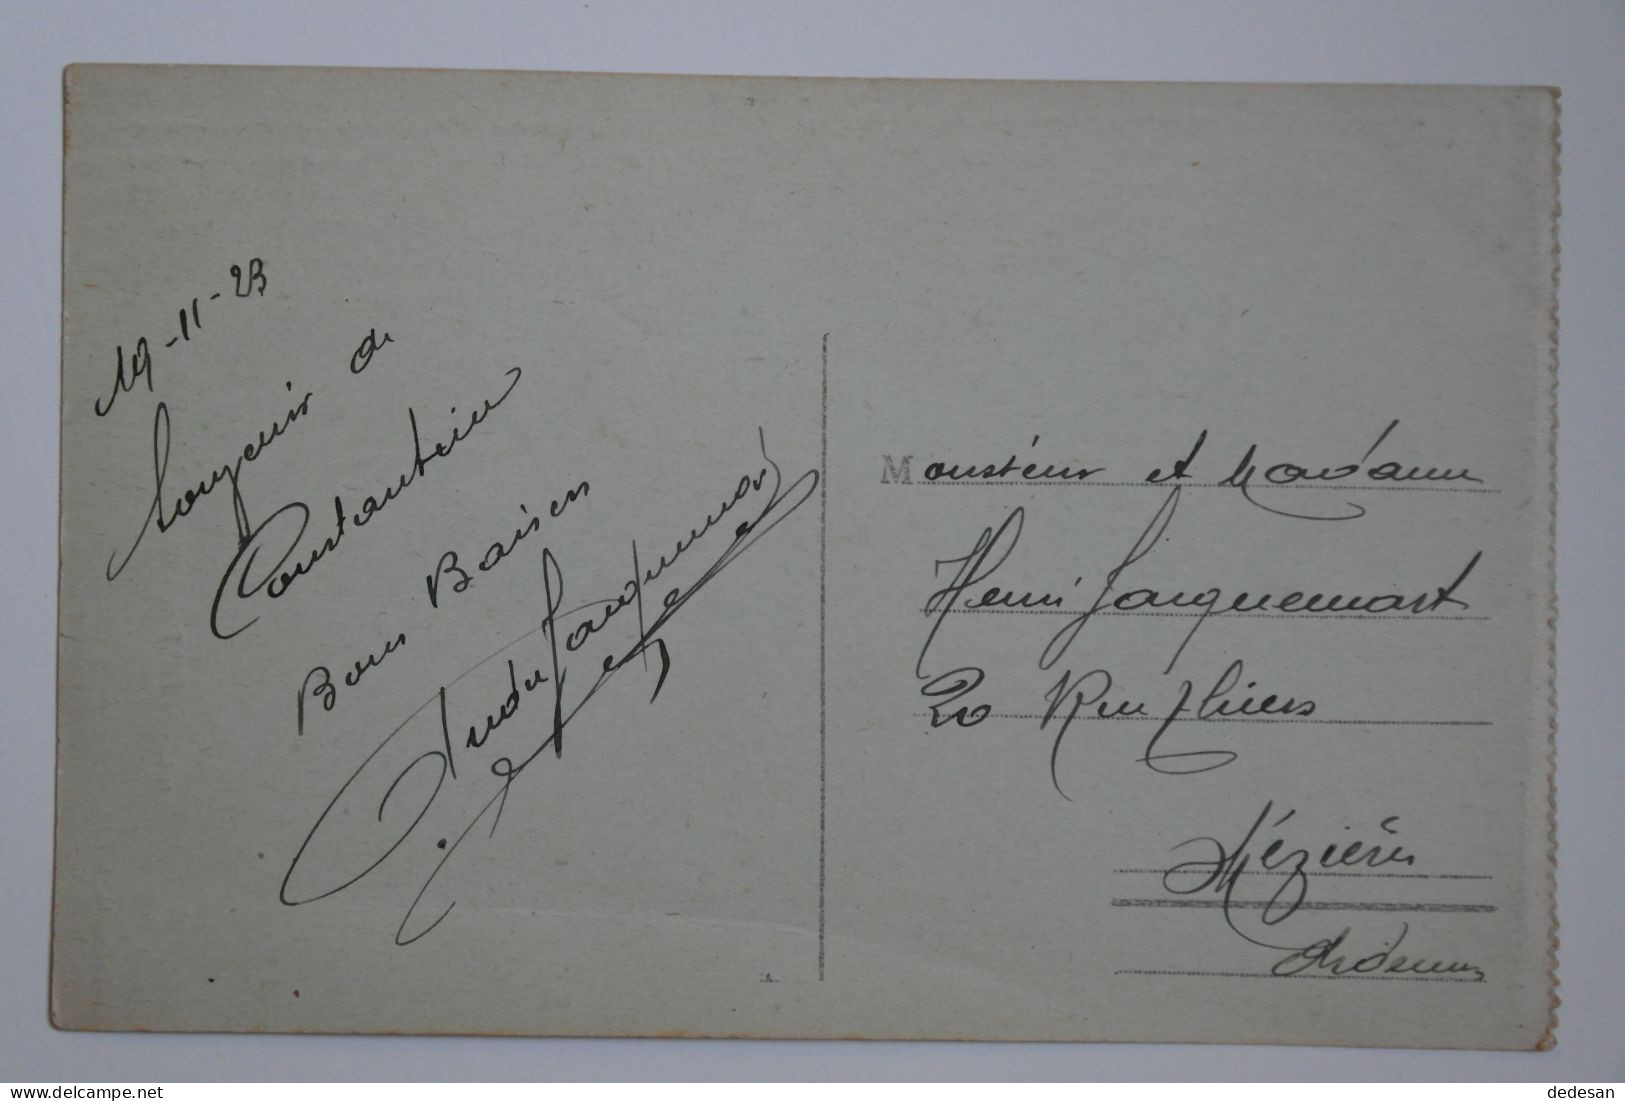 19-11-23
Souvenir de
Constantine
Bons Baisers
André Jacquemart
Monsieur et Madame
Henri Jacquemart
20 Rue Thiers
Mézières
Ardennes
delcampe.net
dedesan